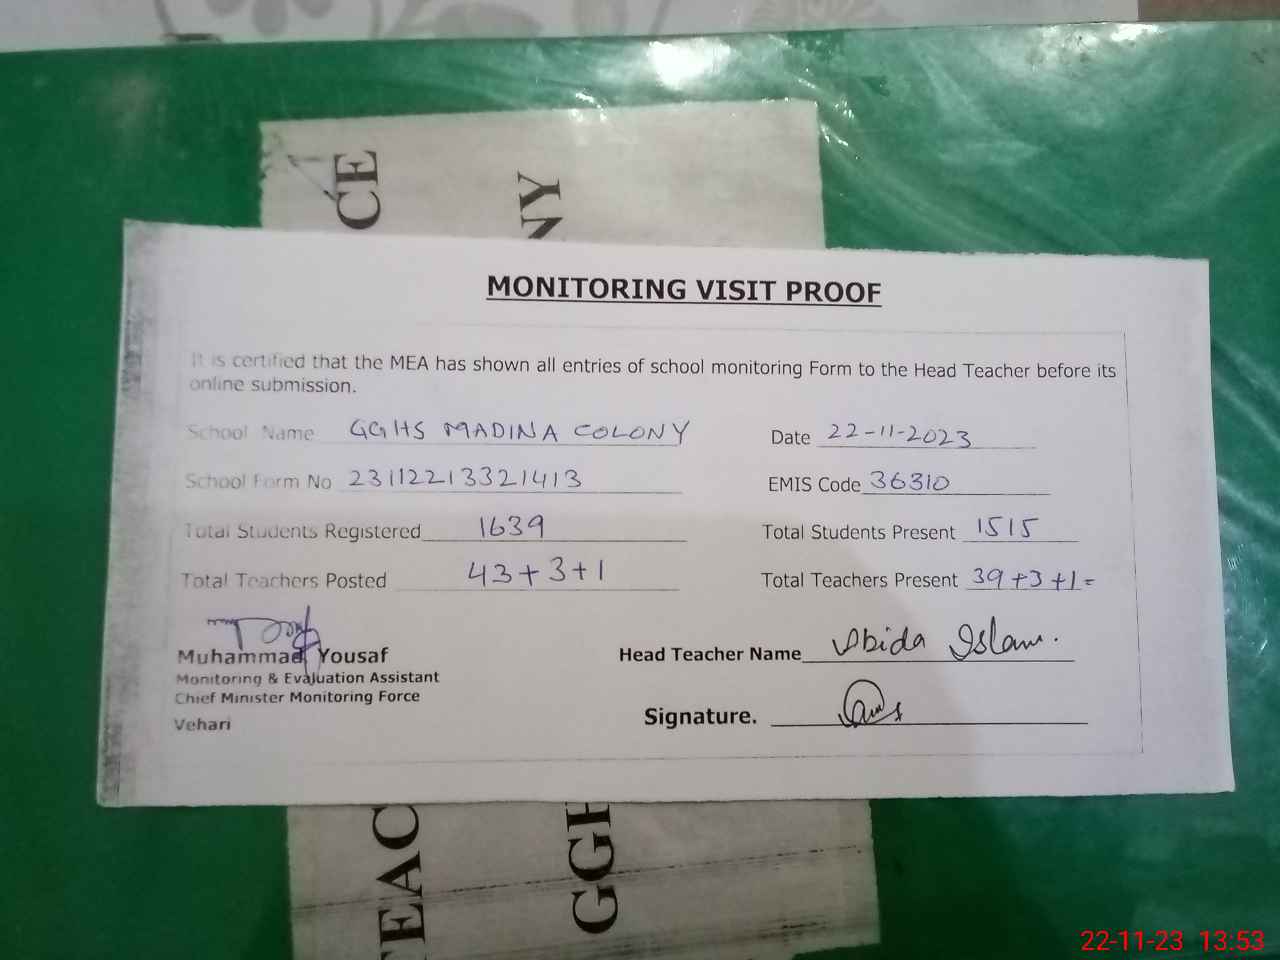 CE
NY
MONITORING VISIT PROOF
It is certified that the MEA has shown all entries of school monitoring Form to the Head Teacher before its
online submission.
School Name GGHS MADINA COLONY Date 22-11-2023
School Form No 23112213321413 EMIS Code 36310
Total Students Registered 1639 Total Students Present 1515
Total Teachers Posted 43+3+1 Total Teachers Present 39+3+1=
Muhammad Yousaf
Monitoring & Evaluation Assistant
Chief Minister Monitoring Force
Vehari
Head Teacher Name Abida Islam.
Signature.
TEAC
GGH
22-11-23 13:53